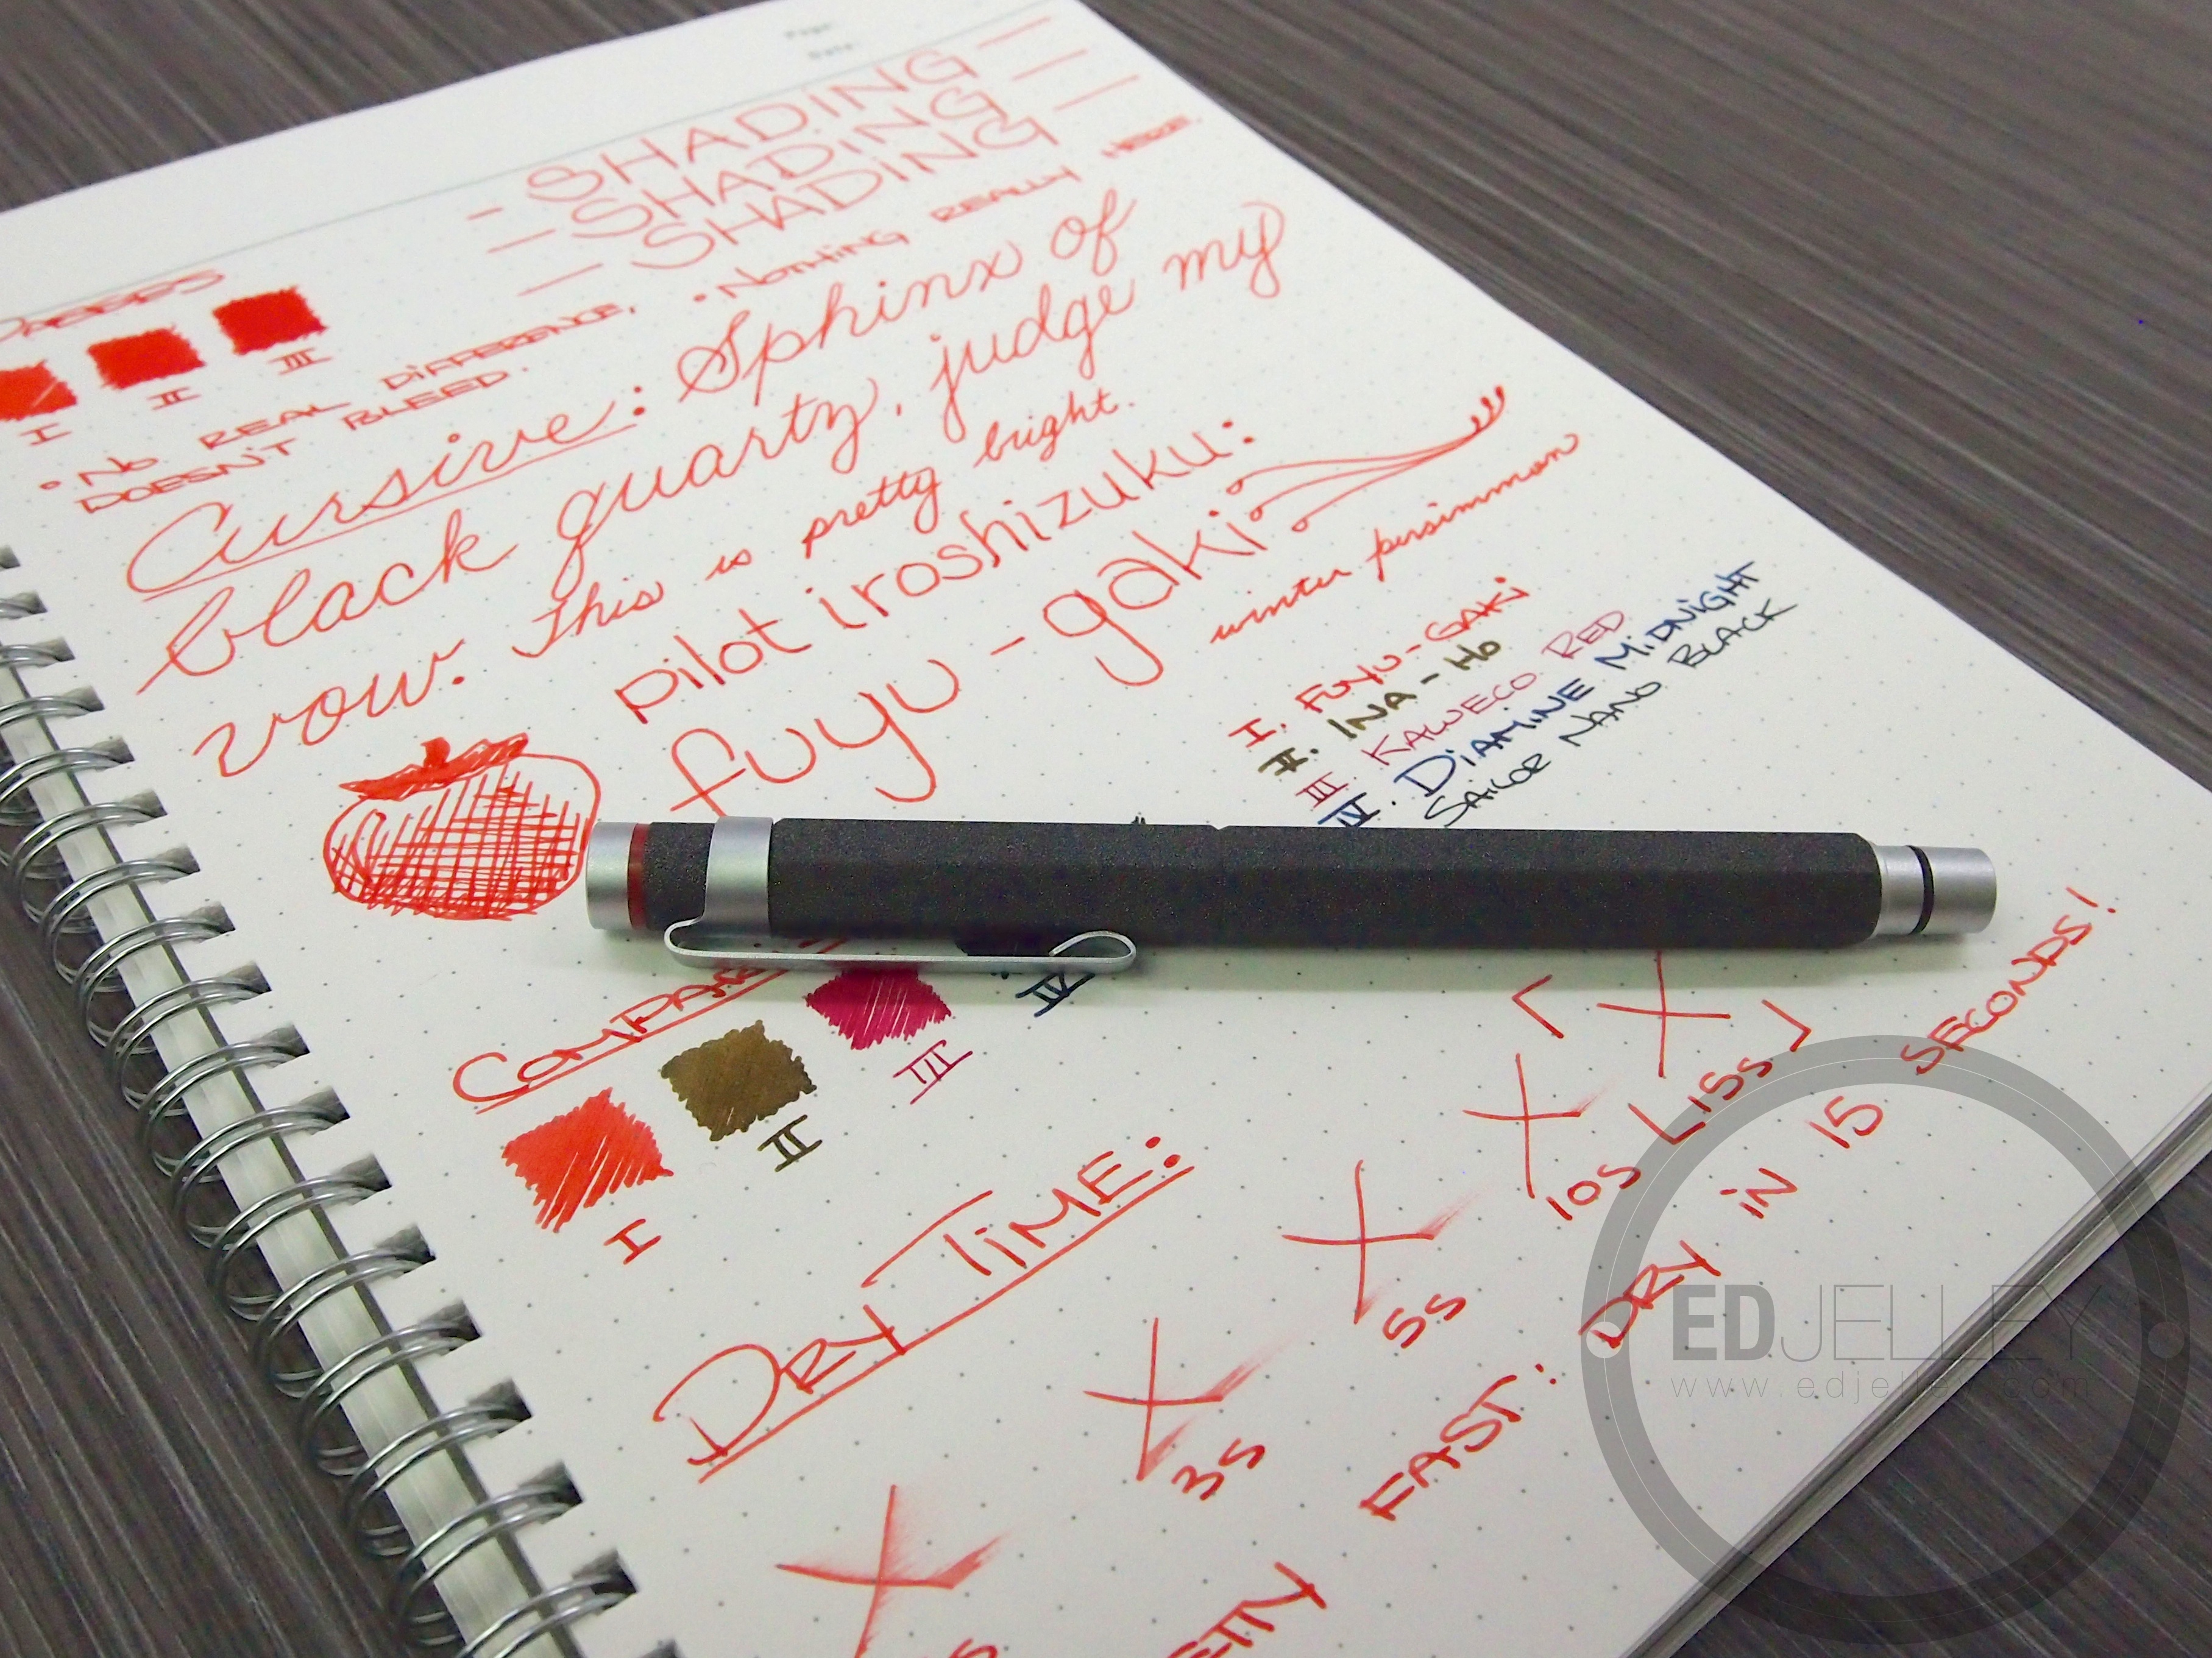 - SHADING -
- SHADING -
- SHADING -
PASSES
I II III
• NO REAL DIFFERENCE,
DOESN'T BLEED.
• NOTHING REALLY HERE.
Cursive: Sphinx of
black quartz, judge my
vow. This is pretty bright.
pilot iroshizuku:
fuyu-gaki
winter persimmon
I. FUYU-GAKI
II. INA-HO
III. KAWECO RED
IV. DIAMINE MIDNIGHT
SAILOR NANO BLACK
I II III IV
DRY TIME:
3s 5s 10s [15s]
FAST: DRY IN 15 SECONDS!
EDJELLEY
www.edjelley.com